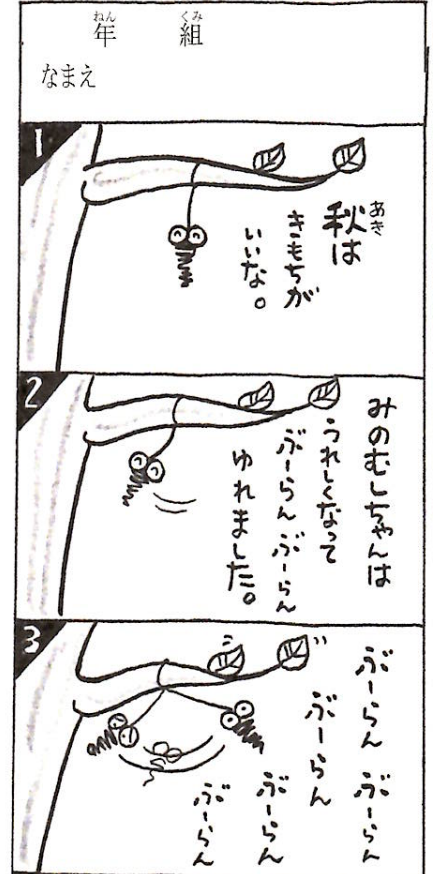 年 組
なまえ
1
秋は
きもちが
いいな。
2
みのむしちゃんは
うれしくなって
ぶーらんぶーらん
ゆれました。
3
ぶーらん ぶーらん
ぶーらん
ぶーらん
ぶーらん